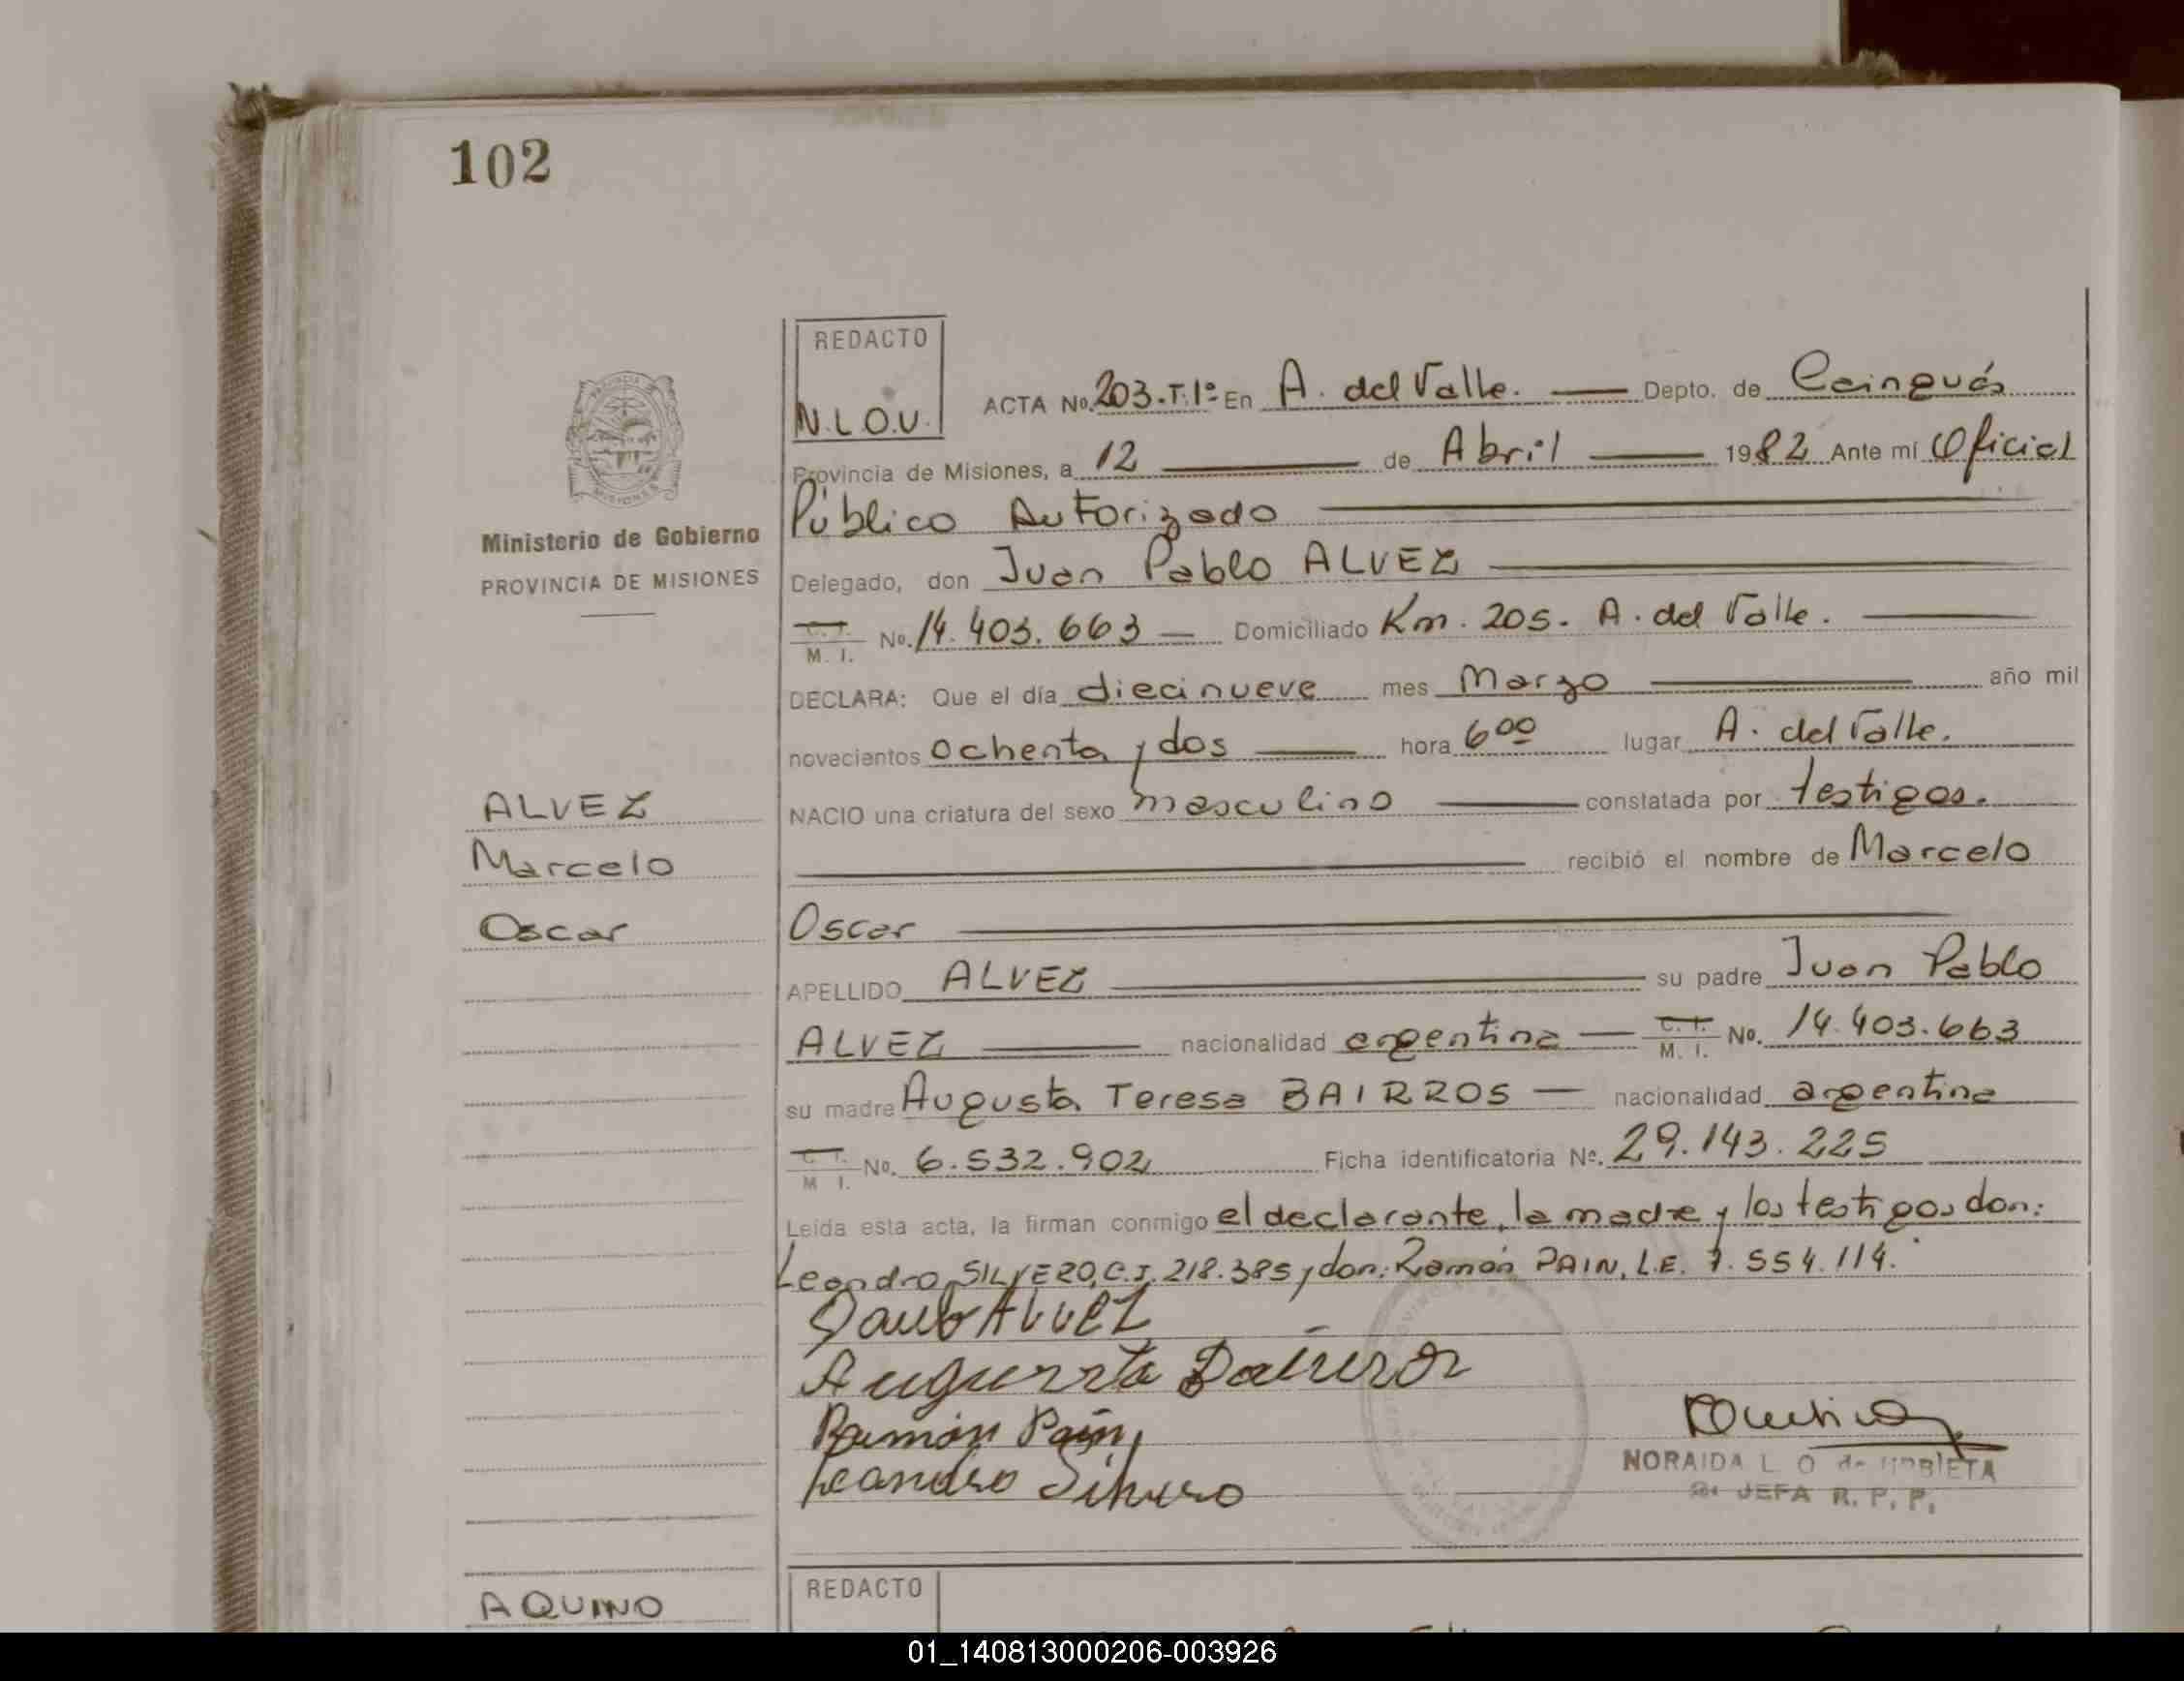 102
REDACTO
N.L.O.U.
ACTA No. 203.T.1º En A. del Valle. Depto. de Cainguás
Provincia de Misiones, a 12 de Abril 1982 Ante mí Oficial
Público Autorizado
Delegado, don Juan Pablo ALVEZ
C. I. M. I. No. 14.403.663 Domiciliado Km. 205. A. del Valle.
DECLARA: Que el día diecinueve mes Marzo año mil
novecientos ochenta y dos hora 6 00 lugar A. del Valle.
NACIO una criatura del sexo masculino constatada por testigos.
recibió el nombre de Marcelo
Oscar
APELLIDO ALVEZ su padre Juan Pablo
ALVEZ nacionalidad argentina C. I. M. I. No. 14.403.663
su madre Augusta Teresa BAIRROS nacionalidad argentina
C. I. M. I. No. 6.532.902 Ficha identificatoria No. 29.143.225
Leída esta acta, la firman conmigo el declarante, la madre y los testigos don:
Leandro SILVERO, C.I. 218.385 y don: Ramón PAIN, L.E. 7.554.114.
ALVEZ
Augusta
Ramón Pain
Leandro Silvero
NORAIDA L. O. de URBIETA
JEFA R. P. P.
PROVINCIA DE
MISIONES
Ministerio de Gobierno
PROVINCIA DE MISIONES
ALVEZ
Marcelo
Oscar
AQUINO
REDACTO
01_140813000206-003926